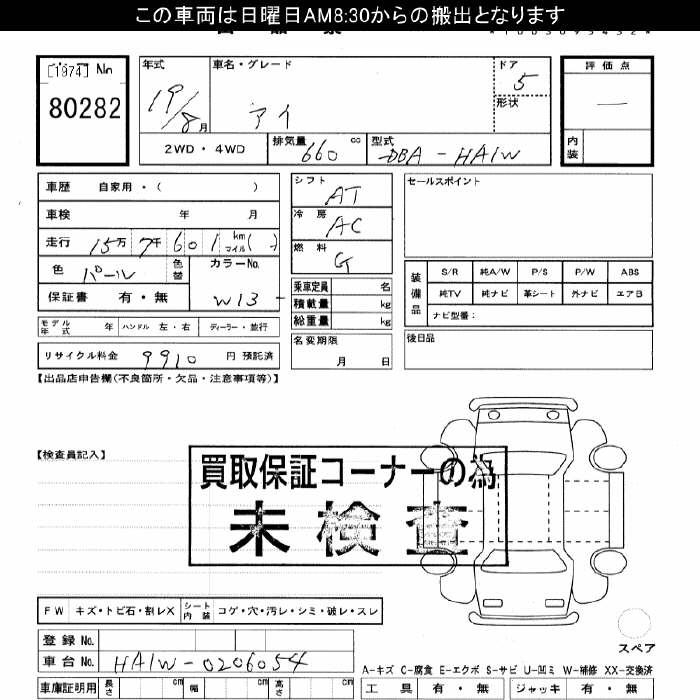 この車両は日曜日AM8:30からの搬出となります
[1974] No
80282
年式
19/8月
車名・グレード
アイ
ドア
5
形状
2WD・4WD
排気量 660 cc
型式 DBA-HA1W
評価点
—
内装
車歴 自家用・( )
車検 年 月
走行 15万7千601 km マイル( )
色 パール
色替
カラーNo.
W13-
保証書 有・無
モデル年式 年 ハンドル 左・右 ディーラー・並行
リサイクル料金 9910 円 預託済
シフト AT
冷房 AC
燃料 G
乗車定員 名
積載量 kg
総重量 kg
名変期限
月 日
セールスポイント
装備品
S/R 純A/W P/S P/W ABS
純TV 純ナビ 革シート 外ナビ エアB
ナビ型番:
後日品
【出品店申告欄(不良箇所・欠品・注意事項等)】
【検査員記入】
買取保証コーナーの為
未検査
FW キズ・トビ石・割レX シート内装 コゲ・穴・汚レ・シミ・破レ・スレ
登録 No.
車台 No. HA1W-0206054
車庫証明用 長さ cm 幅 cm 高さ cm
スペア
A-キズ C-腐食 E-エクボ S-サビ U-凹ミ W-補修 XX-交換済
工具 有・無 ジャッキ 有・無